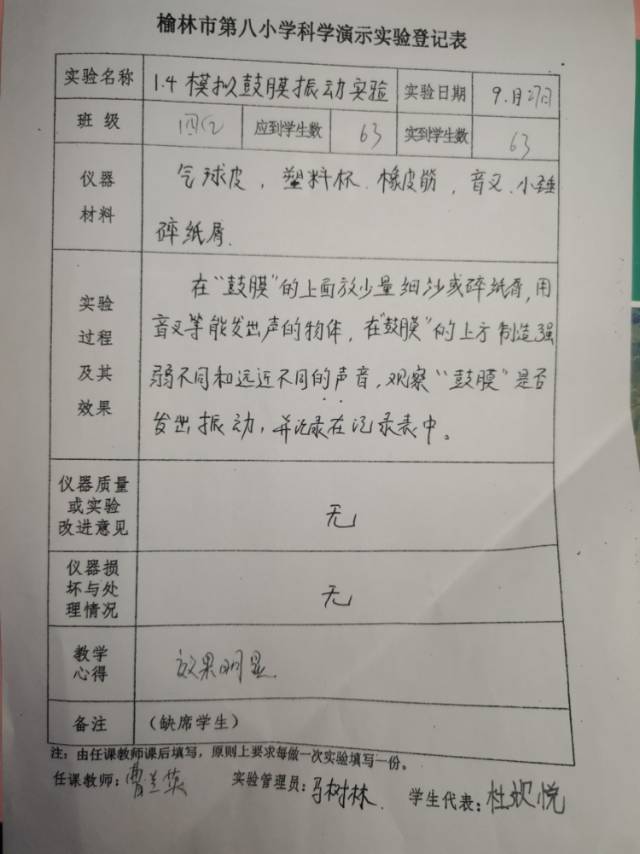 榆林市第八小学科学演示实验登记表
实验名称 1.4 模拟鼓膜振动实验 实验日期 9.月27日
班 级 应到学生数 63 实到学生数 63
仪器 材料 气球皮，塑料杯、橡皮筋，音叉、小锤
碎纸屑.
实验 过程 及其 效果 在“鼓膜”的上面放少量细沙或碎纸屑,用
音叉等能发出声的物体，在“鼓膜”的上方制造强
弱不同和远近不同的声音,观察“鼓膜”是否
发出振动，并记录在记录表中。
仪器质量 或实验 改进意见 无
仪器损 坏与处 理情况 无
教学 心得 效果明显.
备注 （缺席学生）
注：由任课教师课后填写，原则上要求每做一次实验填写一份。
任课教师：曹兰 实验管理员：马树林 学生代表：杜欢悦